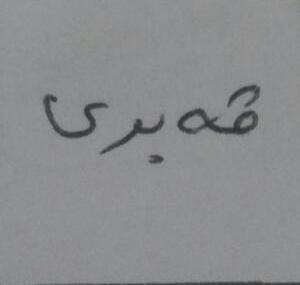 قەبری